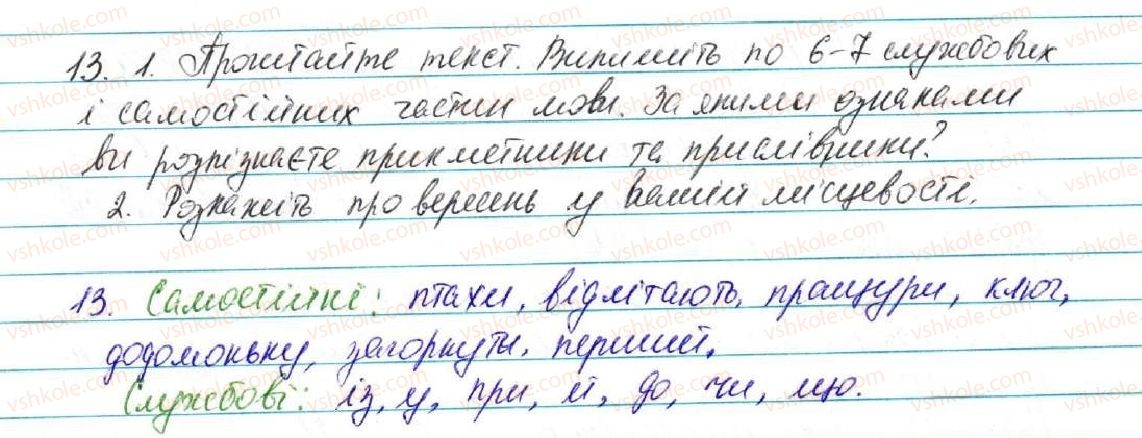 13. 1. Прочитайте текст. Випишіть по 6-7 службових
і самостійних частин мови. За якими ознаками
ви розпізнаєте прикметники та прислівники?
2. Розкажіть про вересень у вашій місцевості.
13. Самостійні: птахи, відлітають, пращури, ключ,
додомоньку, загорнуты, перший.
Службові: із, у, при, й, до, чи, що.